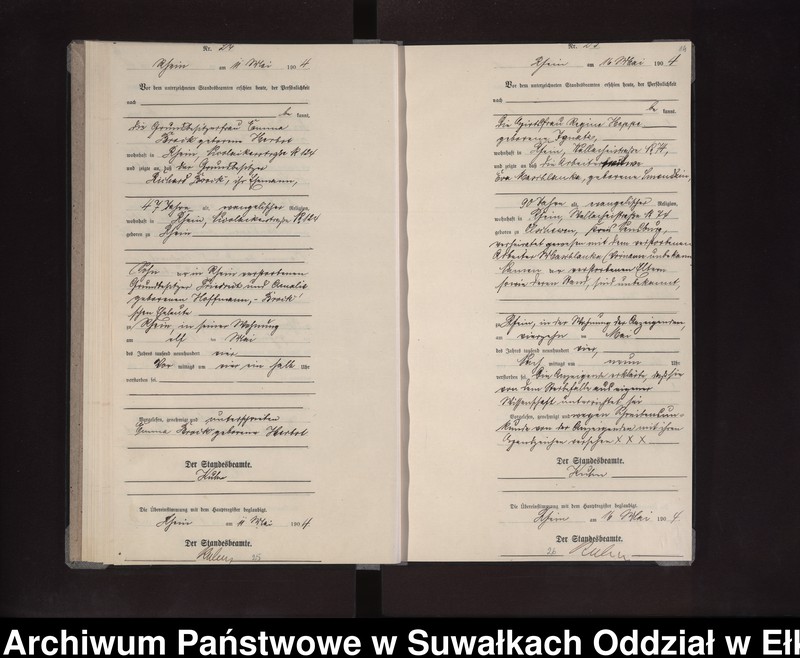 Nr. 24
Rhein am 11 Mai 1904
Vor dem unterzeichneten Standesbeamten erschien heute, der Persönlichkeit
nach
be kannt,
die Grundbesitzerfrau Emma
Broick geborene Herbst
wohnhaft in Rhein,
und zeigte an, daß der Grundbesitzer
Richard Broick, ihr Ehemann,
47 Jahre alt, evangelischer Religion,
wohnhaft in Rhein,
geboren zu Rhein
Sohn der in Rhein verstorbenen
Grundbesitzer Friedrich und Amalie
geborenen Hoffmann, - Broick'
schen Eheleute
zu Rhein, in seiner Wohnung
am elf ten Mai
des Jahres tausend neunhundert vier
Vor mittags um vier ein halb Uhr
verstorben sei
Vorgelesen, genehmigt und unterschrieben
Emma Broick geborene Herbst
Der Standesbeamte.
Kuhn
Die Übereinstimmung mit dem Hauptregister beglaubigt.
Rhein am 11 Mai 1904.
Der Standesbeamte.
Kuhn
25
Nr.
Rhein am 16 Mai 1904
Vor dem unterzeichneten Standesbeamten erschien heute, der Persönlichkeit
nach
be kannt,
die Wirtsfrau Regine Heppe
geborene
wohnhaft in Rhein, Wallacheistraße N 74,
und zeigte an, daß die Arbeiterwitwe
Eva geborene
90 Jahre alt, evangelischer Religion,
wohnhaft in Rhein, Wallacheistraße N 74
geboren zu Kreis Sensburg,
verheiratet gewesen mit dem verstorbenen
Arbeiter
Namen der verstorbenen Eltern
sowie deren Stand, sind unbekannt,
zu Rhein, in der Wohnung der Anzeigenden
am vierzehn ten Mai
des Jahres tausend neunhundert vier,
Nach mittags um neun Uhr
verstorben sei. Die Anzeigende erklärte, daß sie
von dem Sterbefalle aus eigener
Wissenschaft unterrichtet sei
Vorgelesen, genehmigt und wegen Schreibensun-
kunde von der Anzeigenden mit ihrem
Handzeichen versehen X X X
Der Standesbeamte.
Kuhn
Die Übereinstimmung mit dem Hauptregister beglaubigt.
Rhein am 16 Mai 1904.
Der Standesbeamte.
26 Kuhn
Archiwum Państwowe w Suwałkach Oddział w Ełk